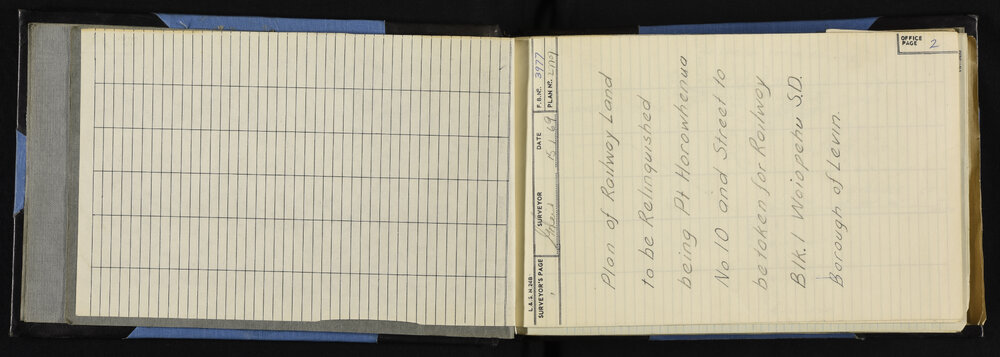 OFFICE PAGE 2
L. & S. H. 26B
SURVEYOR'S PAGE
SURVEYOR
DATE 15.1.69
F.B. Nº. 3977
PLAN Nº.
Plan of Railway Land
to be Relinquished
being Pt Horowhenua
No 10 and Street to
be taken for Railway
Blk. 1 Waiopehu S.D.
Borough of Levin